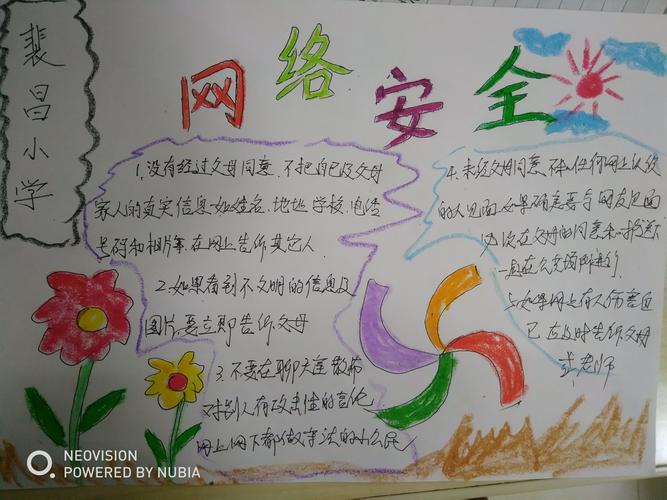 裴昌小学
网络安全
1.没有经过父母同意,不把自己及父母
家人的真实信息,如姓名、地址、学校、电话
号码和相片等,在网上告诉其它人
2.如果看到不文明的信息及
图片,要立即告诉父母
3.不要在聊天室散布
对别人有攻击性的言论
网上网下都做守法的小公民
4.未经父母同意,不和任何网上认识
的人见面,如果确定要与网友见面
必须在父母的同意和
一起在公共场所进行
5.如果网上有人伤害自
己,应及时告诉父母
或老师
NEOVISION
POWERED BY NUBIA